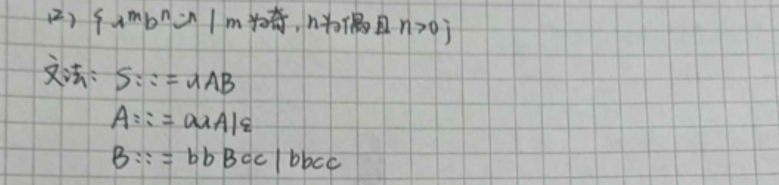 (2) { a^m b^n c^n | m为奇, n为偶且 n>0}
文法: S::= aAB
A::= aaA|ε
B::= bbBcc | bbcc